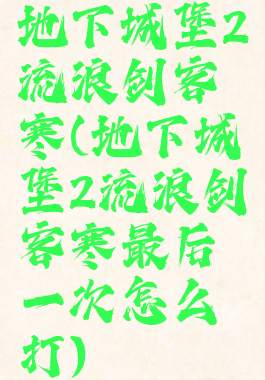 地下城堡2
流浪剑客
寒(地下城
堡2流浪剑
客寒最后
一次怎么
打)